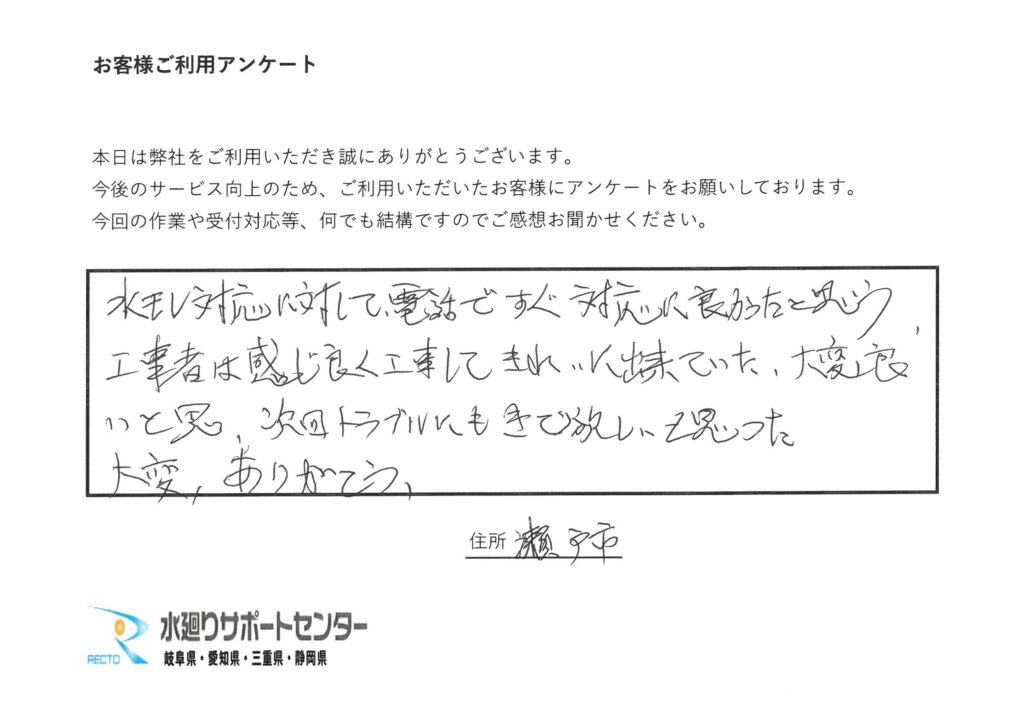 お客様ご利用アンケート
本日は弊社をご利用いただき誠にありがとうございます。
今後のサービス向上のため、ご利用いただいたお客様にアンケートをお願いしております。
今回の作業や受付対応等、何でも結構ですのでご感想お聞かせください。
対応に対して、電話ですぐ対応に良かったと思う、
工事者は感じ良く工事してきれいに出来ていた、大変良
いと思、次回トラブルにもきて欲しいと思った
大変、ありがとう、
住所 瀬戸市
水廻りサポートセンター
RECTO 岐阜県・愛知県・三重県・静岡県